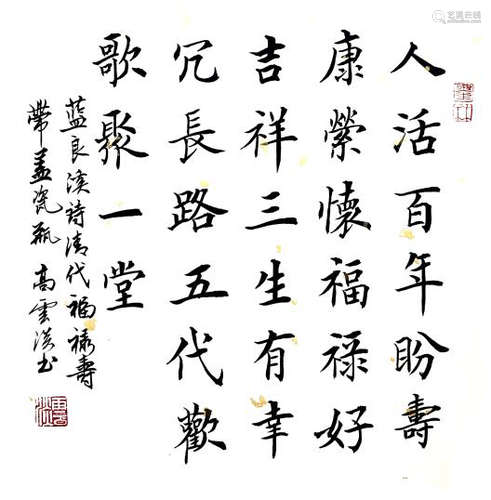 人活百年盼壽
康縈懷福祿好
吉祥三生有幸
冗長路五代歡
歌聚一堂
藍良溪詩清代福祿壽
帶蓋瓷瓶 高雲漢书